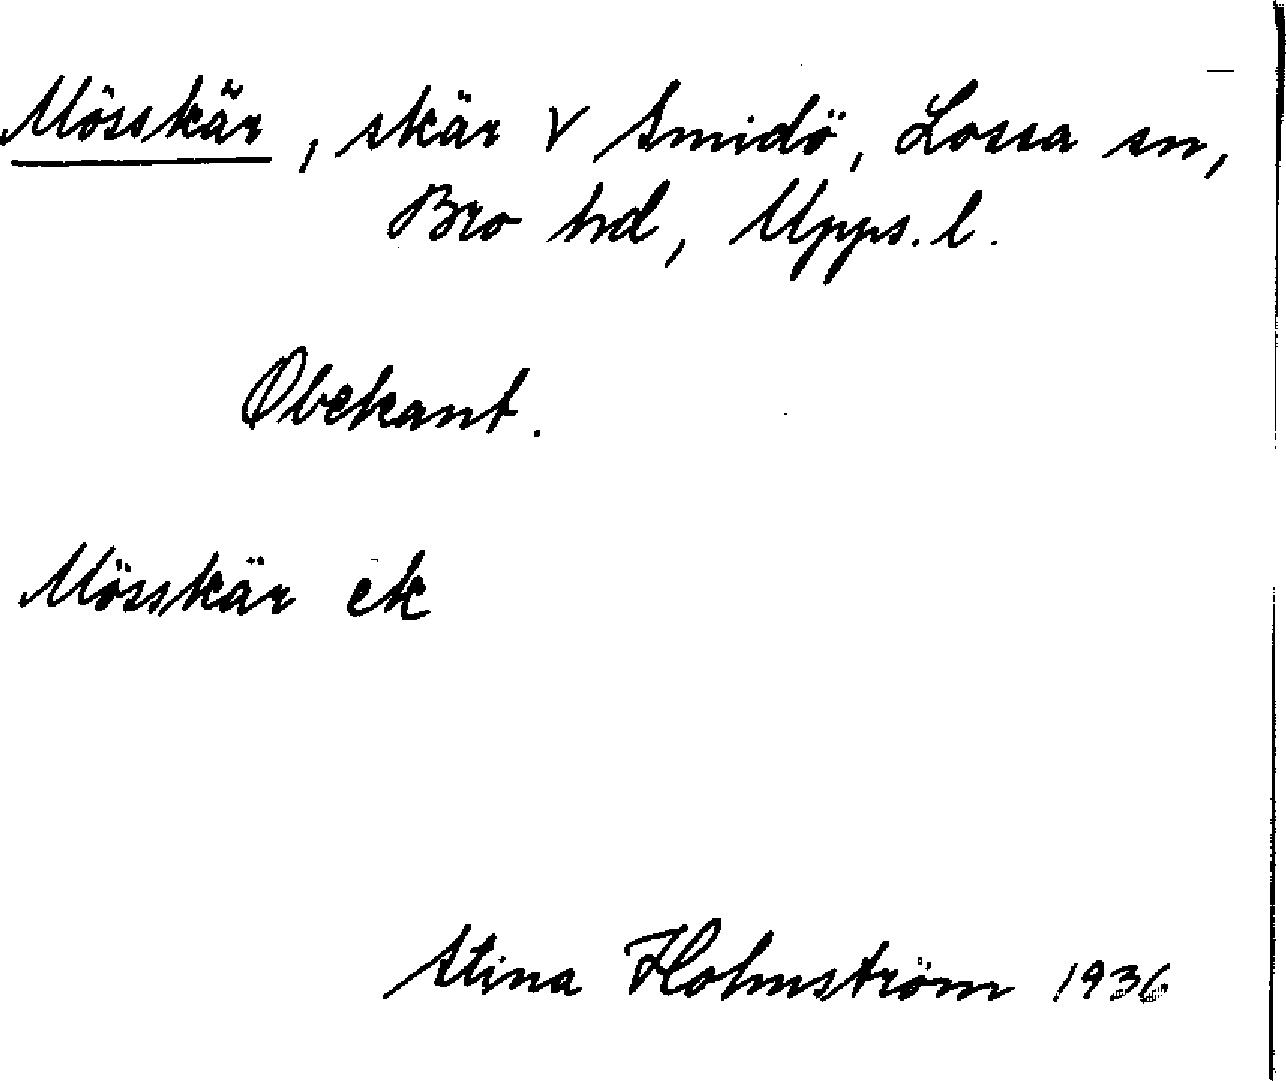 Mösskär, skär V Smidö, Lossa sn,
Bro hd, Upps. l.
Obekant.
Mösskär ek
Stina Holmström 1936